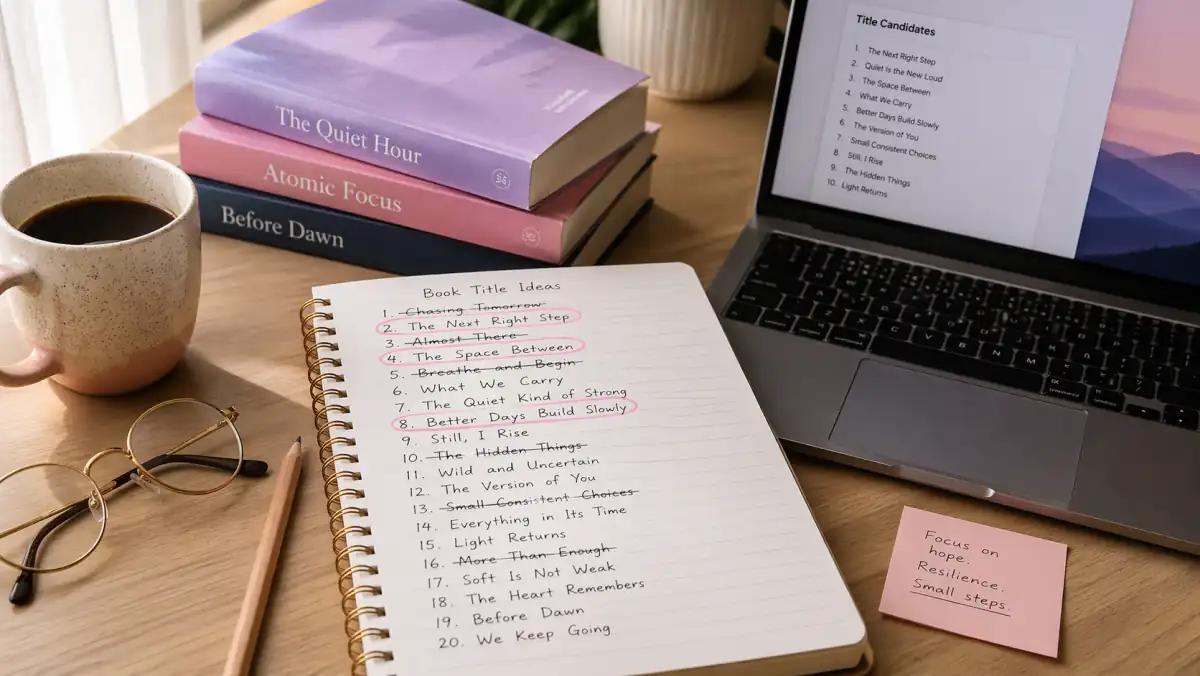 The Quiet Hour
Atomic Focus
Before Dawn
Title Candidates
1. The Next Right Step
2. Quiet Is the New Loud
3. The Space Between
4. What We Carry
5. Better Days Build Slowly
6. The Version of You
7. Small Consistent Choices
8. Still, I Rise
9. The Hidden Things
10. Light Returns
Book Title Ideas
1. Chasing Tomorrow
2. The Next Right Step
3. Almost There
4. The Space Between
5. Breathe and Begin
6. What We Carry
7. The Quiet Kind of Strong
8. Better Days Build Slowly
9. Still, I Rise
10. The Hidden Things
11. Wild and Uncertain
12. The Version of You
13. Small Consistent Choices
14. Everything in Its Time
15. Light Returns
16. More Than Enough
17. Soft Is Not Weak
18. The Heart Remembers
19. Before Dawn
20. We Keep Going
Focus on
hope.
Resilience.
Small steps.